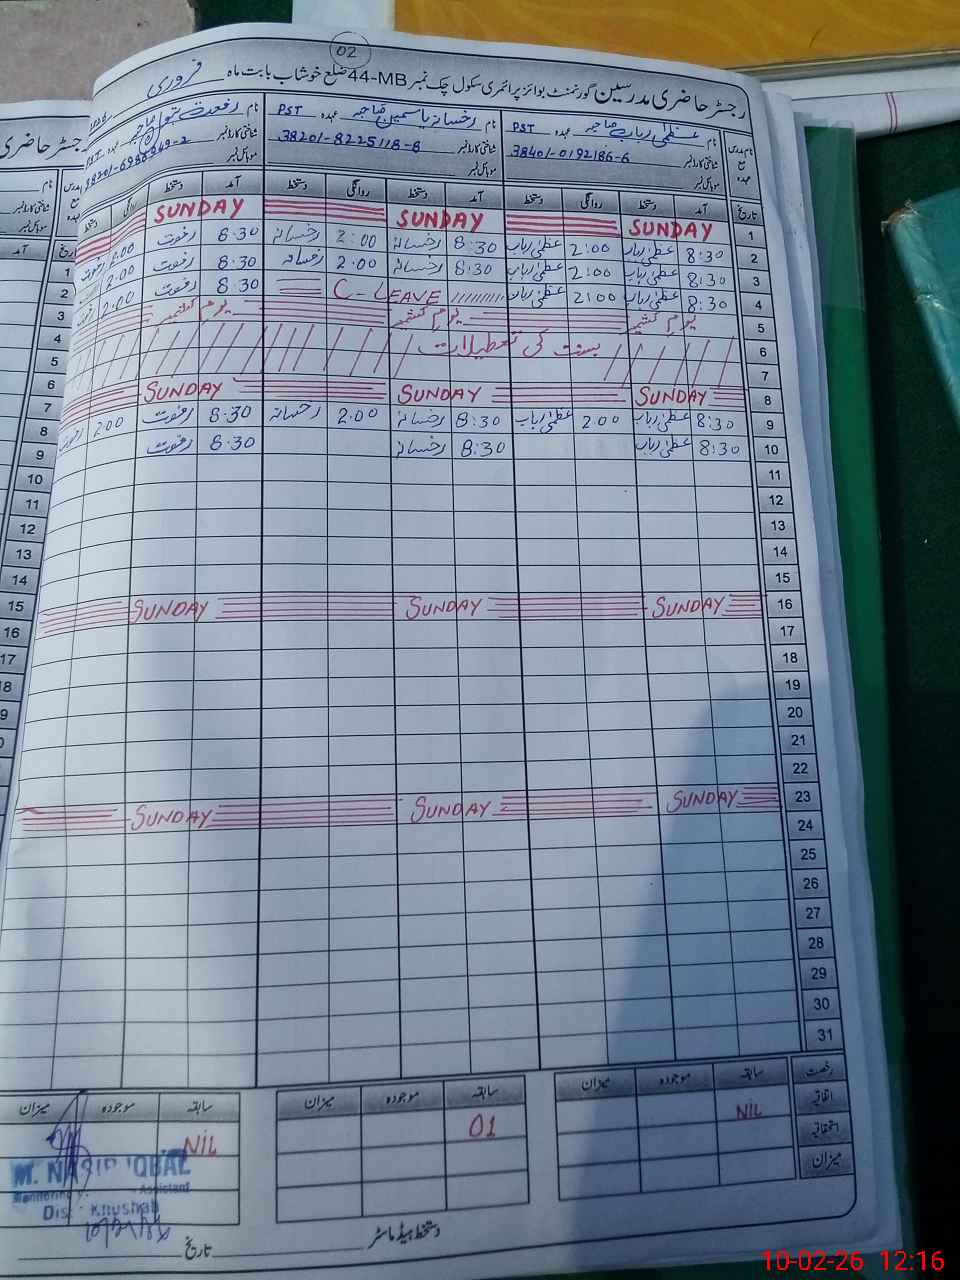 02
رجسٹر حاضری مدرسین گورنمنٹ بوائز پرائمری سکول چک نمبر 44-MB ضلع خوشاب بابت ماہ فروری
نام مدرس مع عہدہ نام عظمیٰ رباب صاحبہ عہدہ PST نام رخسانہ یاسمین صاحبہ عہدہ PST نام رفعت بتول صاحبہ عہدہ PST
شناختی کارڈ نمبر 38401-0192186-6 شناختی کارڈ نمبر 38201-8225118-8 شناختی کارڈ نمبر 38201-6986949-2
موبائل نمبر موبائل نمبر موبائل نمبر
تاریخ آمد دستخط روانگی دستخط آمد دستخط روانگی دستخط آمد دستخط روانگی دستخط
1 SUNDAY SUNDAY SUNDAY
2 8:30 عظمیٰ رباب 2:00 عظمیٰ رباب 8:30 رخسانہ 2:00 رخسانہ 8:30 رفعت 2:00 رفعت
3 8:30 عظمیٰ رباب 2:00 عظمیٰ رباب 8:30 رخسانہ 2.00 رخسانہ 8.30 رفعت 2.00
4 8:30 عظمیٰ رباب 2:00 عظمیٰ رباب C-LEAVE 8.30 رفعت 2:00
5 یوم کشمیر یوم کشمیر یوم کشمیر
6 بسنت کی تعطیلات
7
8 SUNDAY SUNDAY SUNDAY
9 8:30 عظمیٰ رباب 2:00 عظمیٰ رباب 8:30 رخسانہ 2.00 رخسانہ 8.30 رفعت 2.00 رفعت
10 8:30 عظمیٰ رباب 8:30 رخسانہ 8.30 رفعت
11
12
13
14
15
16 SUNDAY SUNDAY SUNDAY
17
18
19
20
21
22
23 SUNDAY SUNDAY SUNDAY
24
25
26
27
28
29
30
31
رخصت سابقہ موجودہ میزان سابقہ موجودہ میزان سابقہ موجودہ میزان
اتفاقیہ NIL 01 NIL
استحقاقیہ
میزان
M. NASIR IQBAL
Monitoring Assistant
Dis: Khushab
دستخط ہیڈ ماسٹر
تاریخ
رجسٹر حاضری
مدرس مع عہدہ
نام
شناختی کارڈ نمبر
موبائل نمبر
تاریخ آمد
1
2
3
4
5
6
7
8
9
10
11
12
13
14
15
16
17
18
19
10-02-26 12:16